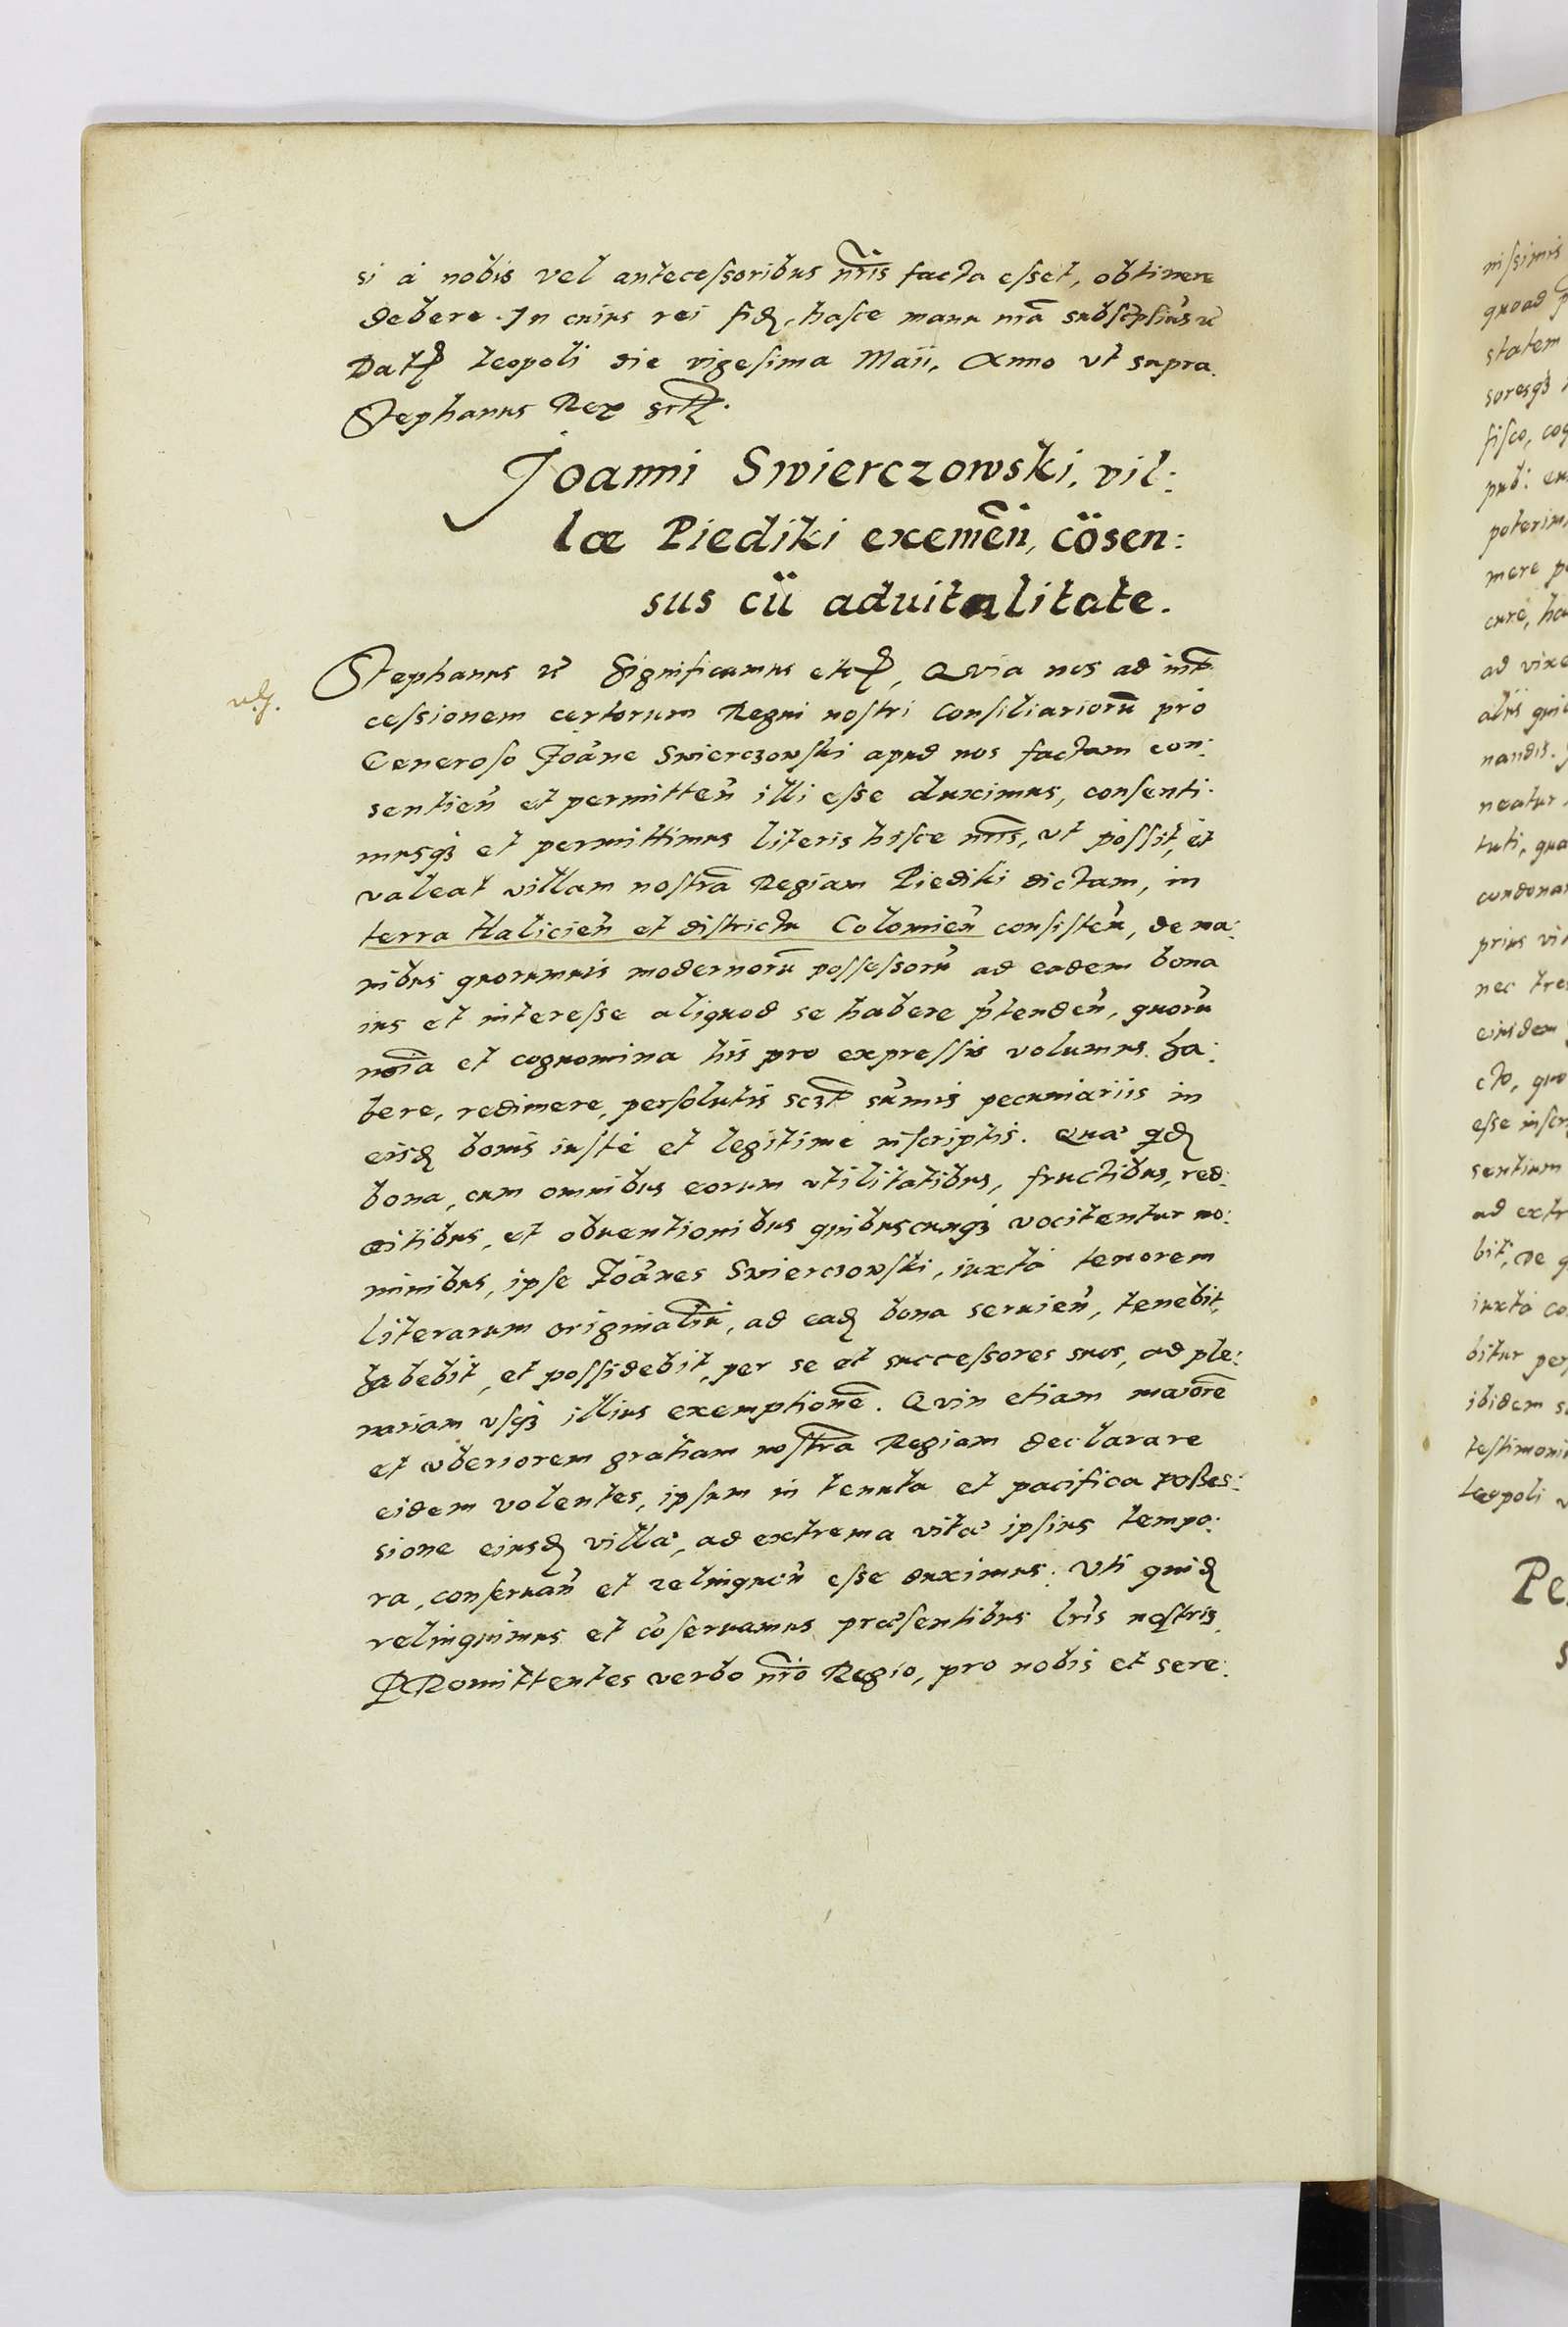 si à nobis vel antecessoribus nr̃is facta esset, obtinere
debere. In cuius rei fid. hasce manu nr̃a subscripsimus
Dat. Leopoli die vigesima Maii, Anno vt supra.
Stephanus Rex srt.
Joanni Swierczowski, vil:
læ Piediki exemẽn, cö̈sen:
sus cü aduitalitate.
Stephanus Significamus Quia nos ad int̃
cessionem certorum Regni nostri Consiliariorũ pro
Generoso Joãne Swierczowski apud nos factam con:
sentien̄ et permitten̄ illi esse duximus, consenti:
musq3 et permittimus literis hisce nr̃is, vt possit, et
valeat villam nostrã Regiam Piediki dictam, in
terra Halicien̄ et districtu Colomien̄ consisten̄, de ma:
nibus quorumuis modernorũ possessorũ ad eadem bona
ius et interesse aliquod se habere p̃tenden̄, quorũ
noĩa et cognomina hìs pro expressis volumus ha:
bere, redimere, persolutis sc3t sũmis pecuniariis in
eisd. bonis iustè et legitimè inscriptis. Quæ qd.
bona, cum omnibus eorum vtilitatibus, fructibus, red:
ditibus, et obuentionibus quibuscunq3 vocitentur no:
minibus, ipse Joãnes Swierczowski, iuxtà tenorem
literarum originaliũ, ad ead. bona seruien̄, tenebit,
habebit, et possidebit, per se et successores suos, ad ple:
nariam vsq3 illius exemptionẽ. Quin etiam maiorẽ
et vberiorem gratiam nostrã Regiam declarare
eidem volentes, ipsum in tenuta et pacifica posses:
sione eiusd. villæ, ad extrema vitæ ipsius tempo:
ra, conseruan̄ et relinquen̄ esse duximus: Vti quid.
relinquimus et cõseruamus præsentibus lr̃is nostris.
PRomittentes verbo nr̃o Regio, pro nobis et sere:
nissimis
quoad
statem
soresq3
fisco,
pub:
mere
cure,
ad
nandis.
neatur
tuti, qua
prius
nec
eiusdem
cto, quo
esse
ad extr
bit, de
iuxtà co
bitur per
ibidem
testimoni
Leopoli
Pe
s